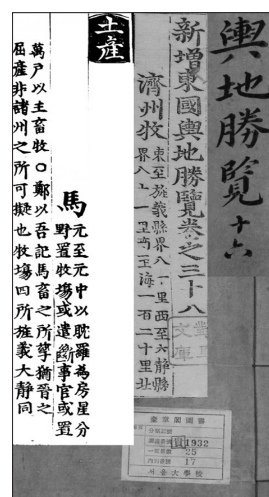 輿地勝覽 十六
新增東國輿地勝覽卷之三十八
濟州牧
東至旌義縣界八
里西至大静縣
界八
海一百二十里北
土産
馬
元至元中以耽羅為房星分
野置牧塲或遣斷事官或置
萬户以主畜牧○鄭以吾記馬畜之所孳猶晉之
屈產非諸州之所可擬也牧塲四所旌義大静同
奎章閣圖書
1932
25
17
서울大學校